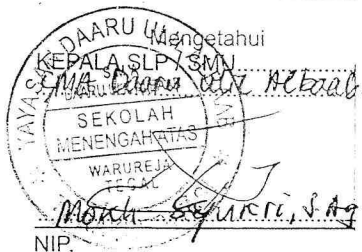 Mengetahui
KEPALA SLP / SMU
SMA Daaru Ulil Albaab
YAYASAN DAARU ULIL ALBAAB
SEKOLAH
MENENGAH ATAS
WARUREJA
TEGAL
Moch Syukri, S.Ag
NIP.